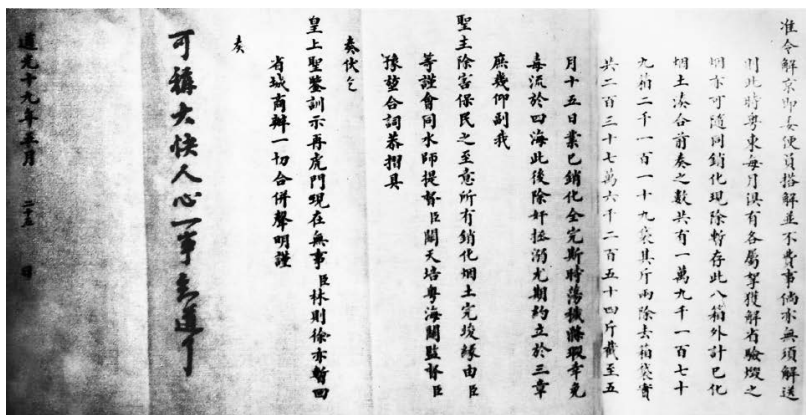 准令解京即委便員搭解並不費事倘亦無須解送
則此時粵東每月俱有各屬拏獲解省驗燬之
烟亦可隨同銷化現除暫存此八箱外計已化
烟土湊合前奏之數共有一萬九千一百七十
九箱二千一百一十九袋其斤兩除去箱袋實
共二百三十七萬六千二百五十四斤截至五
月十五日業已銷化全完斯時蕩穢滌瑕幸免
毒流於四海此後除奸拯溺尤期約立於三章
庶幾仰副我
聖主除害保民之至意所有銷化烟土完竣緣由臣
等謹會同水師提督臣關天培粵海關監督臣
豫堃合詞恭摺具
奏伏乞
皇上聖鑒訓示再虎門現在無事臣林則徐亦暫回
省城商辦一切合併聲明謹
奏
可稱大快人心一事知道了
道光十九年五月 二十五 日